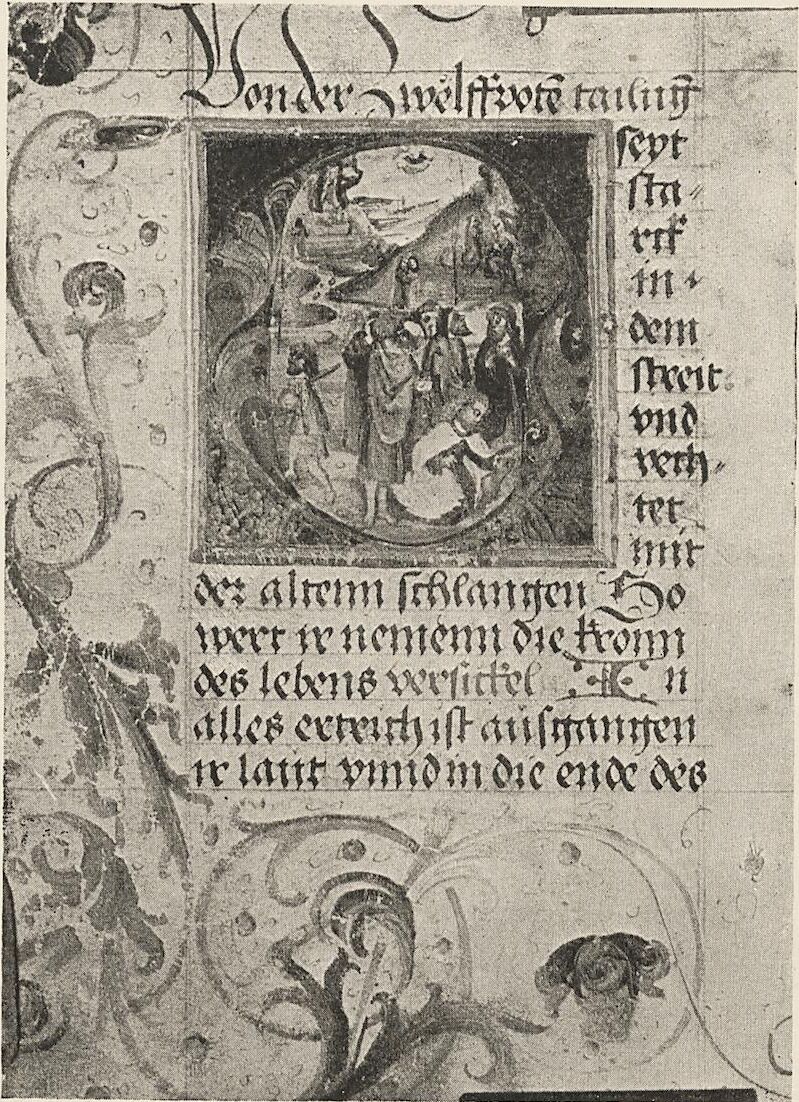 Von der zwölffpotē tailung
seyt
sta-
rck
in
dem
streit
vnd
vech-
tet
mit
der altenn schlangen So
wert ir nemenn die kronn
des lebens versickel In
alles ertrich ist ausgangen
ir laut vnnd in die ende des